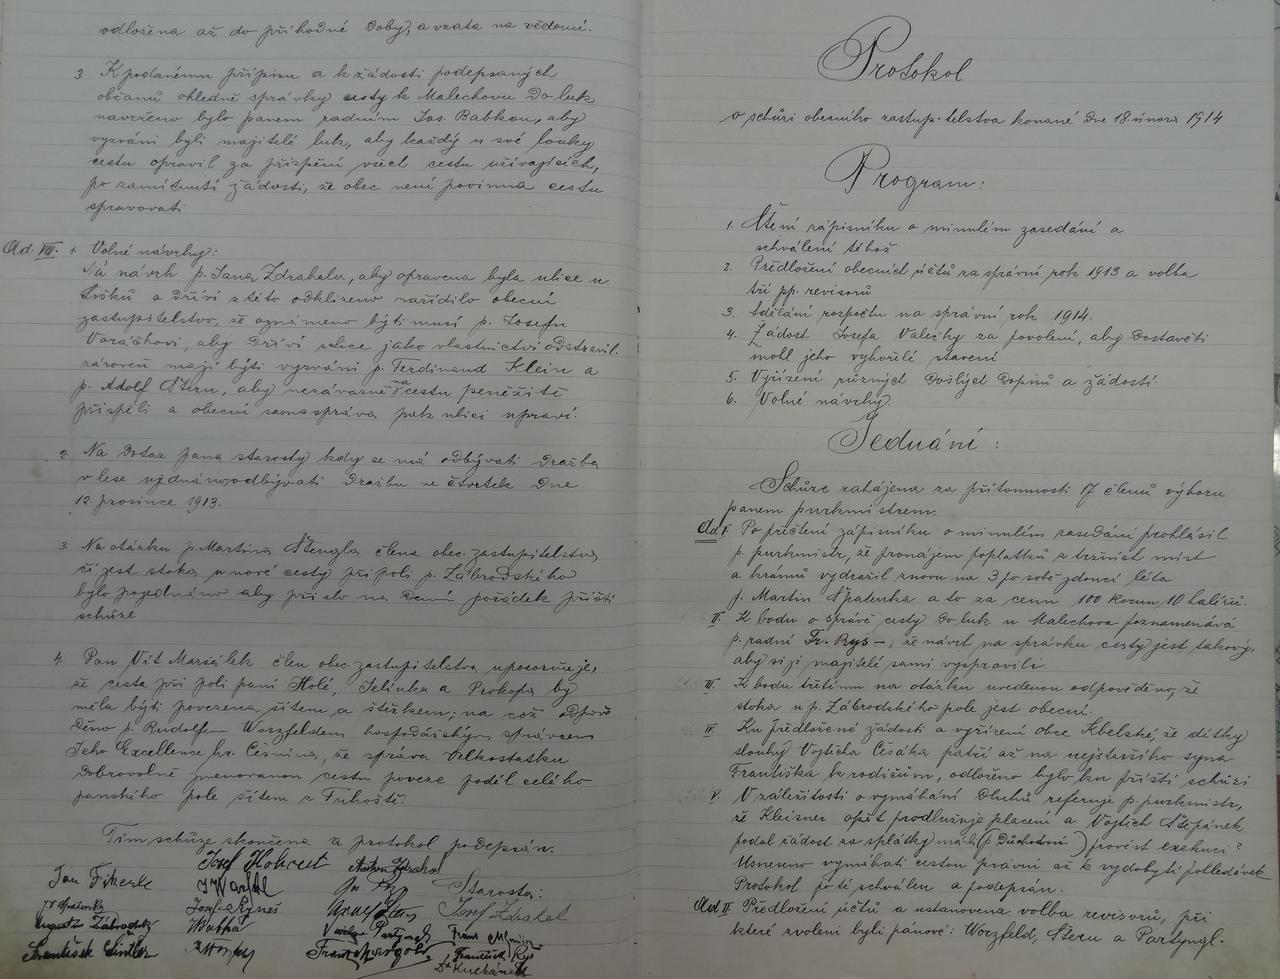 odložena až do příhodné doby, a vzata na vědomí.
3. K podanému přípisu a k žádosti podepsaných
občanů ohledně správky cesty k Malechovu do luk
navrženo bylo panem radním Jos. Babkou, aby
vyzváni byli majitelé luk, aby každý u své louky
cestu opravil za přispění všech cestu užívajících,
po zamítnutí žádosti, že obec není povinna cestu
spravovati
Ad. VIII. 1. Volné návrhy:
Na návrh p. Jana Zdrahala, aby opravena byla ulice u
a dříví z této odklizeno nařídilo obecní
zastupitelstvo, že oznámeno býti musí p. Josefu
Voráčkovi, aby dříví z ulice jako vlastnictví odstranil.
zároveň mají býti vyzváni p. Ferdinand Klein a
p. Adolf Stern, aby nezávazně na cestu peněžitě
přispěli a obecní samospráva pak ulici upraví.
2. Na dotaz pana starosty kdy se má odbývati dražba
v lese ujednáno odbývati dražbu ve čtvrtek dne
12. prosince 1913.
3. Na otázku p. Martina Štengla člena obec. zastupitelstva
čí jest stoka u nové cesty při poli p. Zábrodského
bylo pojednáno aby přišlo na denní pořádek příští
schůze
4. Pan Vít Maršálek člen obec. zastupitelstva uposorňuje,
že cesta při poli paní Holé, Jelínka a Prokopa by
měla býti povezena šítem a štěrkem; na což odpově
děno p. Rudolfem Worzfeldem hospodářským správcem
Jeho Excellence hr. Černína, že správa Velkostatku
dobrovolně jmenovanou cestu poveze podél celého
panského pole šítem z Tuhoště.
Tím schůze skončena a protokol podepsán.
Josef Anton Zdrahal
Jan Fikerle
Starosta:
Josef Zdrahal
Augustin Zábrodský Babka
František
František Rys
Kuchánek
Protokol
o schůzi obecního zastupitelstva konané dne 18. února 1914
Program:
1. Čtení zápisníku o minulém zasedání a
schválení téhož
2. Předložení obecních účtů za správní rok 1913 a volba
tří pp. revisorů
3. Sdělání rozpočtu na správní rok 1914.
4. Žádost Josefa Valečky za povolení, aby dostavěti
mohl jeho vyhořilé stavení
5. Vyřízení různých došlých dopisů a žádostí
6. Volné návrhy.
Jednání:
Schůze zahájena za přítomnosti 17 členů výboru
panem purkmistrem.
Ad I. Po přečtení zápisníku o minulém zasedání prohlásil
p. purkmistr, že pronájem poplatků z tržních míst
a krámů vydražil znovu na 3 po sobě jdoucí léta
p. Martin Špatenka a to za cenu 100 korun 10 haléřů.
II. K bodu o správě cesty do luk u Malechova poznamenává
p. radní Fr. Rys –, že návrh na správku cesty jest takový,
aby si ji majitelé sami vyspravili.
III. K bodu třetímu na otázku uvedenou odpověděno, že
stoka u p. Zábrodského pole jest obecní.
IV. Ku předložené žádosti a vyřízení obce Kbelské, že dítky
slouhy Vojtěcha Čišáka patří až na nejstaršího syna
Františka k rodičům, odloženo bylo ku příští schůzi
V. V záležitosti o vymáhání dluhů referuje p. purkmistr,
že Kleisner opět prodlužuje placení a Vojtěch Štěpánek
podal žádost za splátky má-li (p. Důchodní) provést exekuci?
Usneseno vymáhati cestou právní až k vydobytí pohledávek
Protokol poté schválen a podepsán.
Ad II. Předložení účtů a ustanovena volba revisorů, při
které zvoleni byli pánové: Worzfeld, Stern a Partyngl.